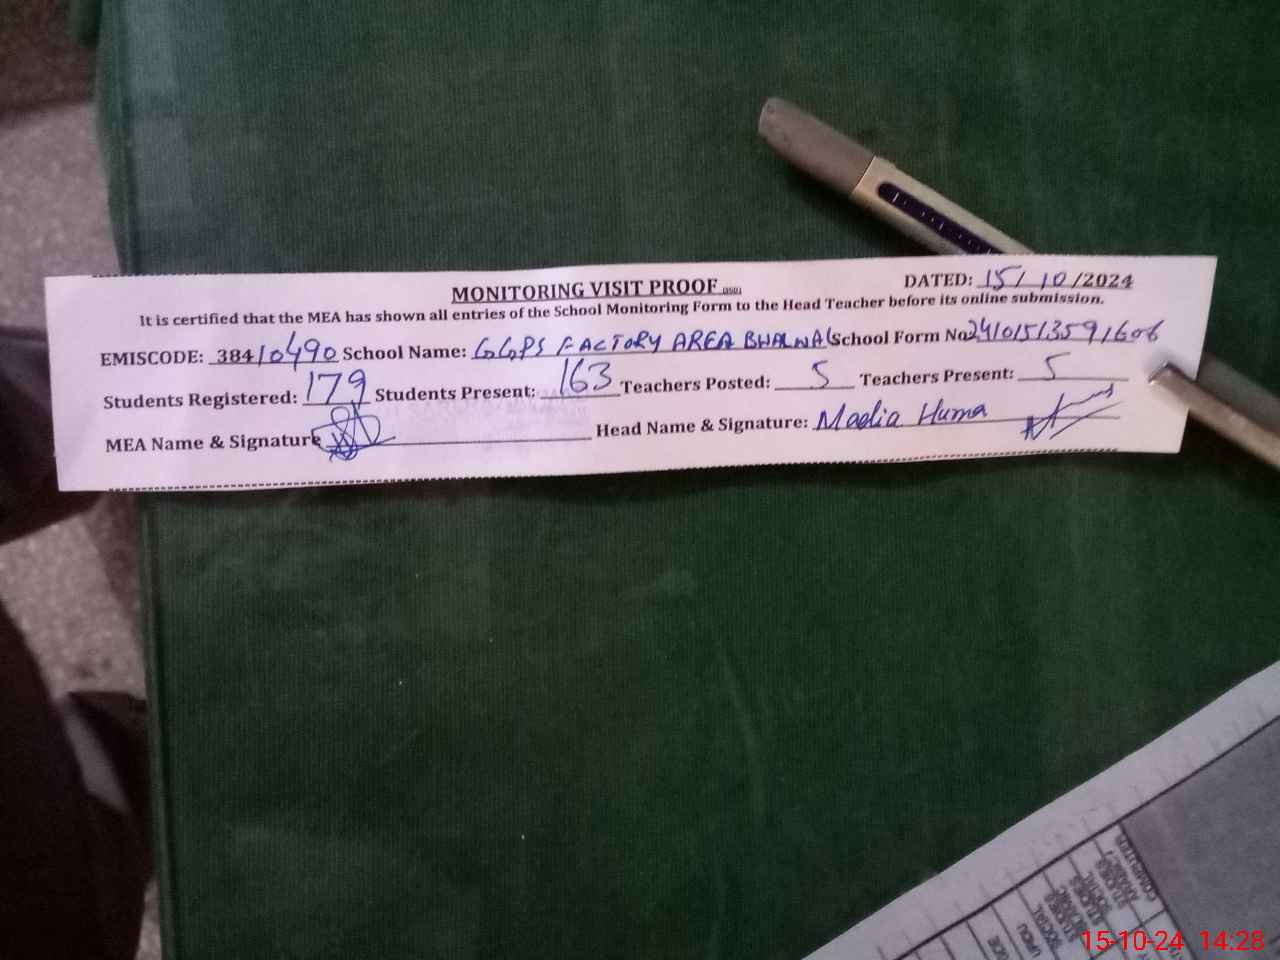 MONITORING VISIT PROOF DATED: 15/10/2024
It is certified that the MEA has shown all entries of the School Monitoring Form to the Head Teacher before its online submission.
EMISCODE: 38410490 School Name: GGPS FACTORY AREA BHALWAL School Form No 24101513591606
Students Registered: 179 Students Present: 163 Teachers Posted: 5 Teachers Present: 5
MEA Name & Signature Head Name & Signature: Madia Huma
COMPUTER
SOCIAL
STUDIES
URDU
15-10-24 14:28